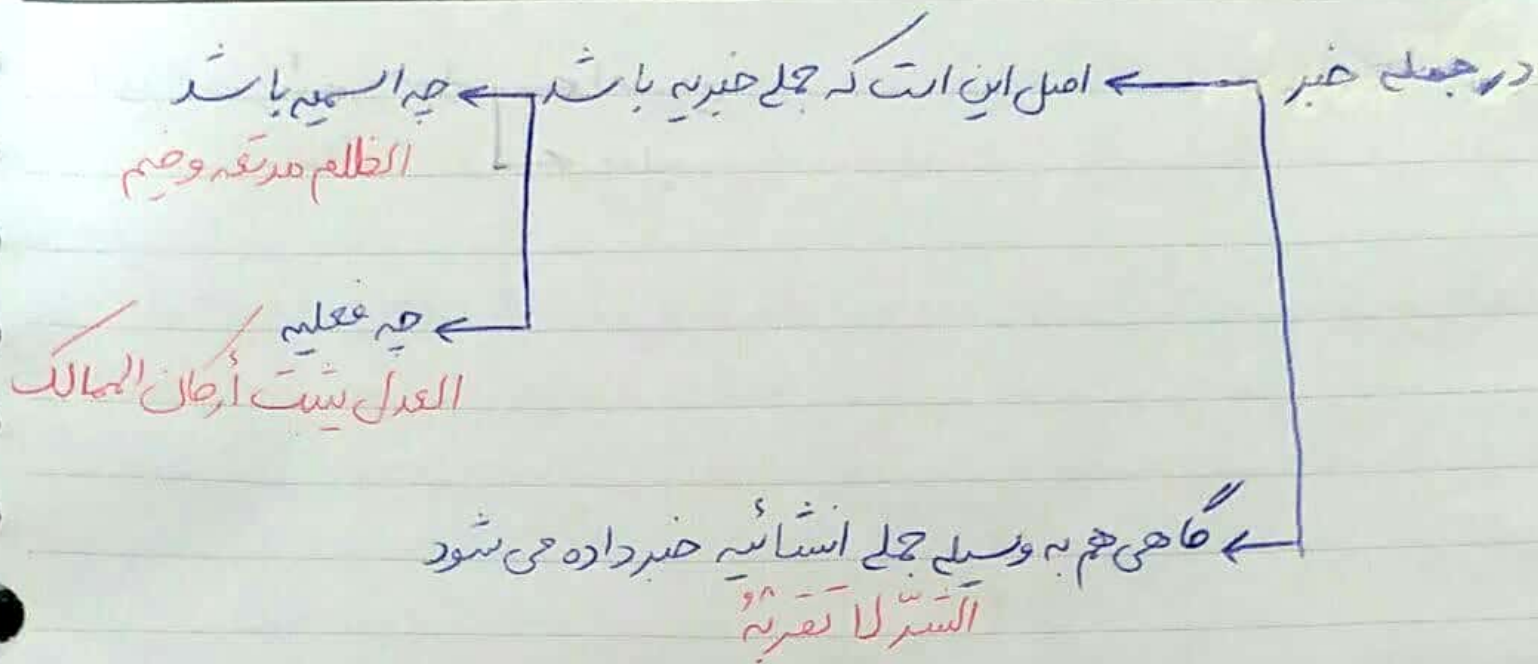 در جمله خبر ← اصل این است که جمله خبریه باشد ← چه اسمیه باشد
الظلم مرتعه وخیم
← چه فعلیه
العدل یثبت أرکان الممالک
← گاهی هم به وسیله جمله انشائیه خبر داده می شود
الشرّ لا تَقرَبْهُ